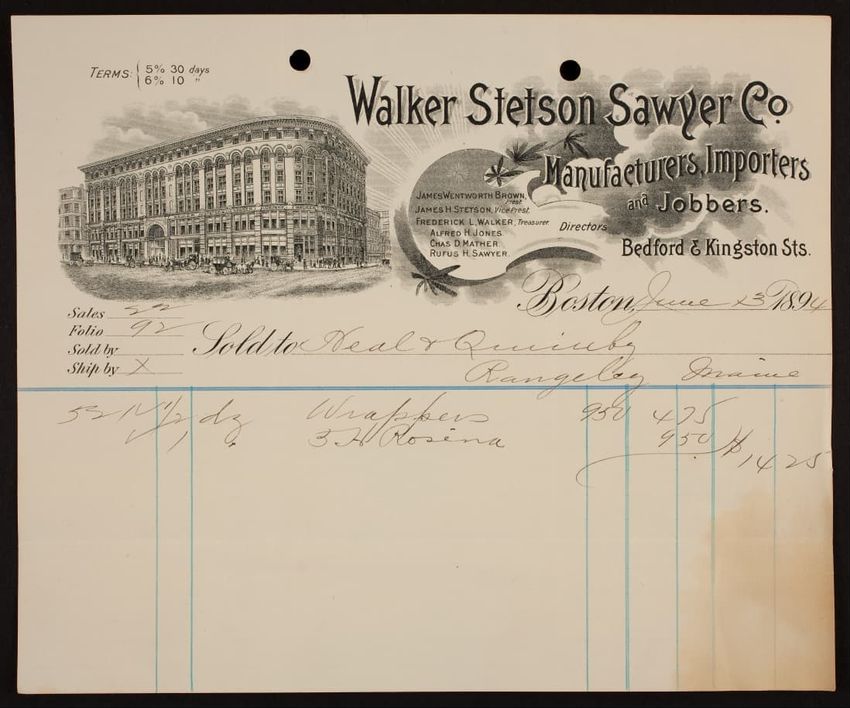 TERMS: 5% 30 days
6% 10 "
Walker Stetson Sawyer Co.
Manufacturers, Importers
and Jobbers.
JAMES WENTWORTH BROWN, Prest.
JAMES H. STETSON, Vice Prest.
FREDERICK L. WALKER, Treasurer
ALFRED H. JONES
CHAS D. MATHER
RUFUS H. SAWYER.
Directors
Bedford & Kingston Sts.
Boston, June 23 1894
Sales 22
Folio 92
Sold by
Ship by X
Sold to Neal & Quimby
Rangeley Maine
52 1/2 dz Wrappers 950 475
1 " 3 H Rosina 950
14 25